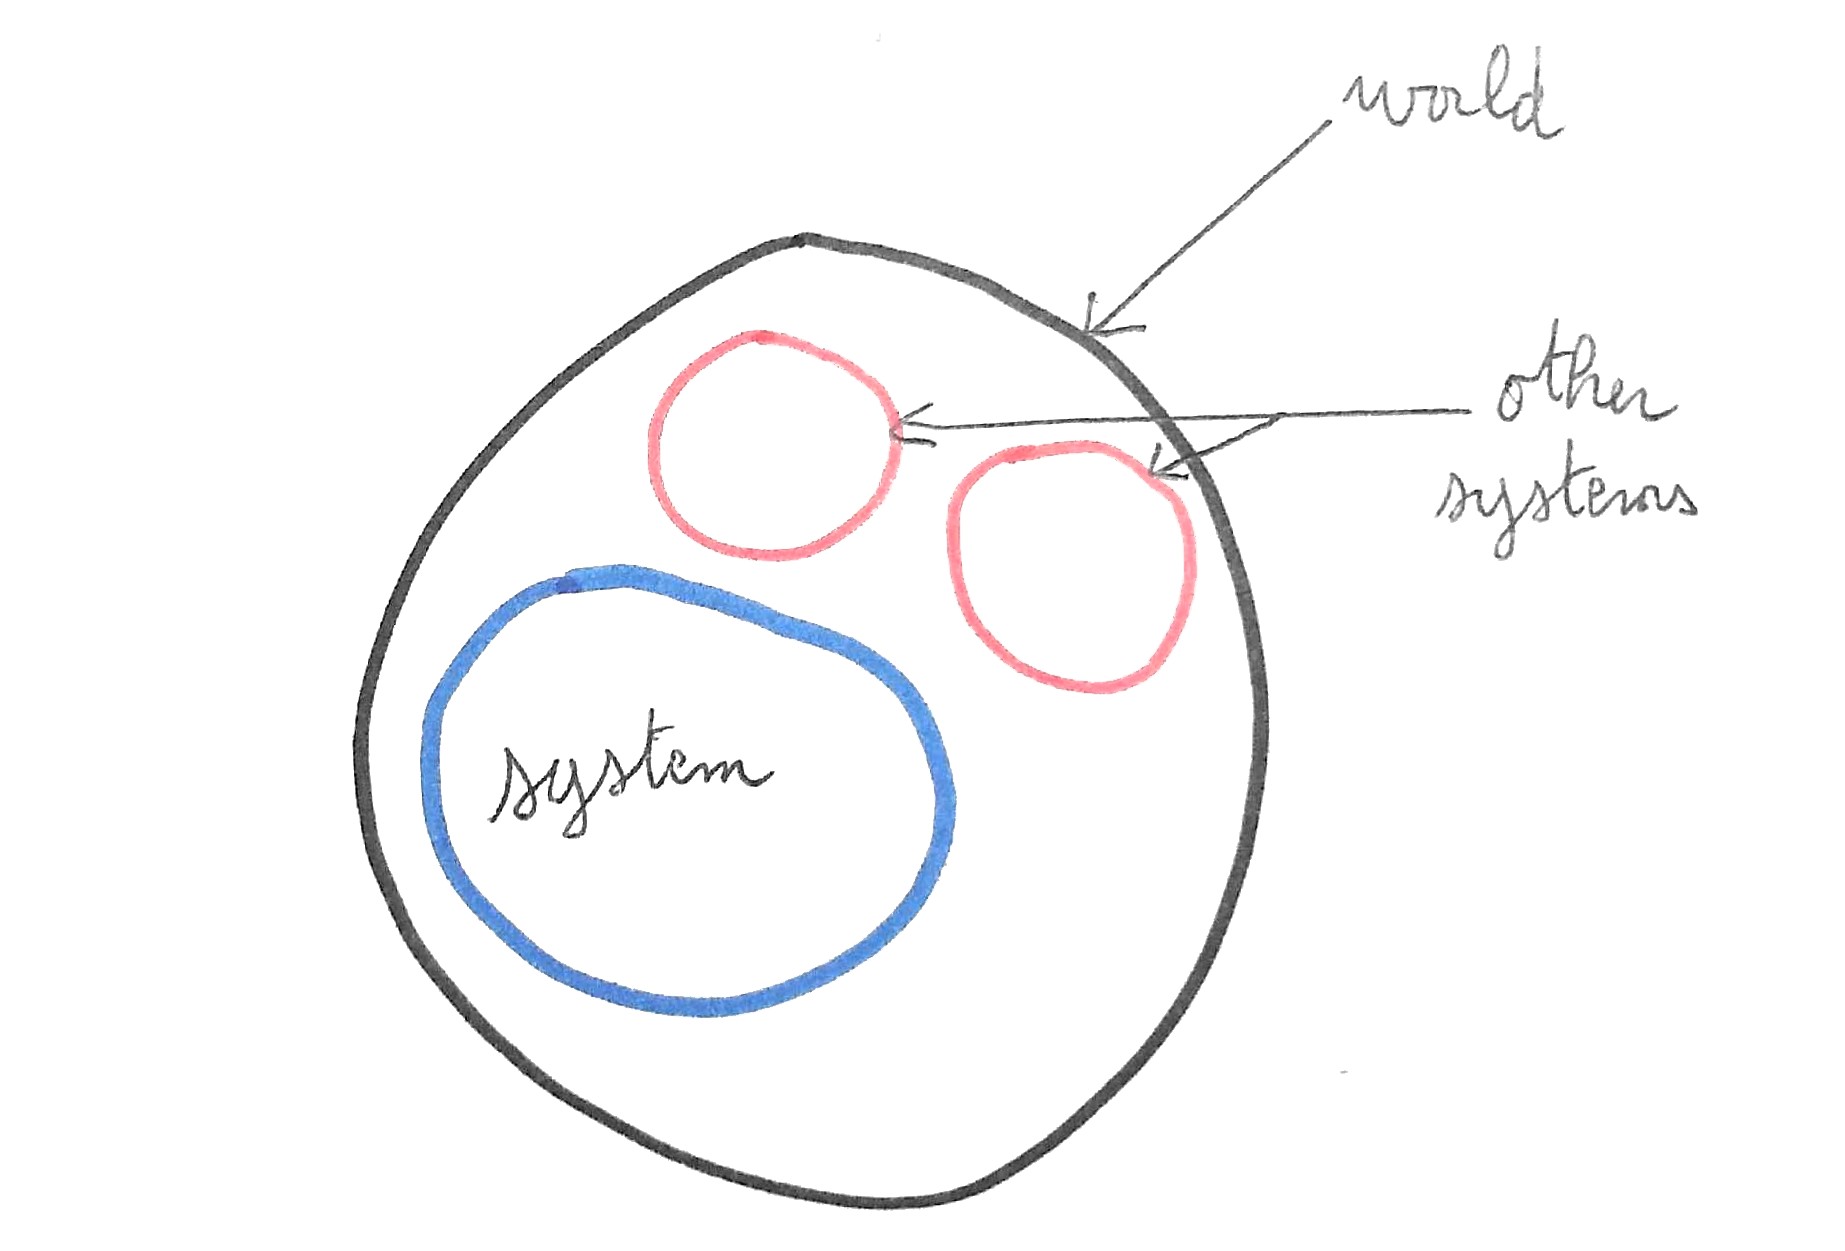 world
other
systems
system